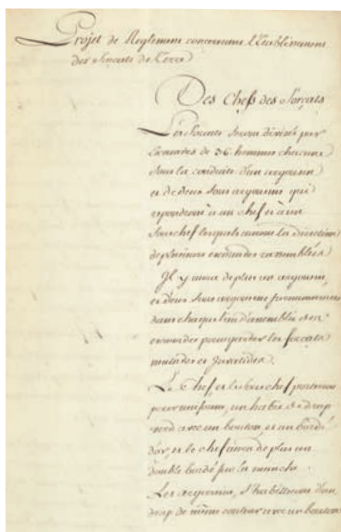 Projet de Reglement concernant l'Etablissement
des Forçats de Terre
Des Chefs des Forçats
Les Forçats seront divisés par
Escouades de 36 hommes chacune
sous la conduite d'un argousin
et de deux sous argousins qui
repondront à un chef et à un
sous chef lesquels auront la direction
de plusieurs escouades rassemblées
Il y aura de plus un argousin,
et deux sous argousins
dans chaque lieu d'assemblée des
escouades pour garder les forçats
malades et Invalides.
Le Chef et le sous chef porteront
pour uniforme, un habit de drap
avec un bouton, et un bordé
d'or, et le chef aura de plus un
double bordé sur la manche.
Les argousins, s'habilleront d'un
drap de même couleur avec un bouton